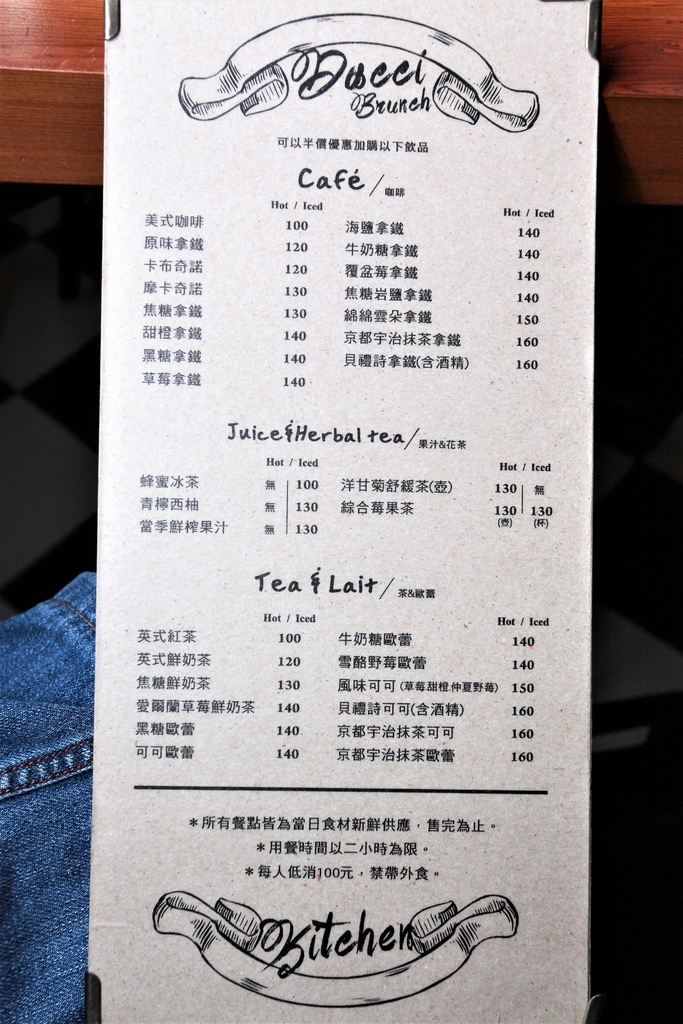 Docci
Brunch
可以半價優惠加購以下飲品
Café / 咖啡
Hot / Iced
美式咖啡 100
原味拿鐵 120
卡布奇諾 120
摩卡奇諾 130
焦糖拿鐵 130
甜橙拿鐵 140
黑糖拿鐵 140
草莓拿鐵 140
Hot / Iced
海鹽拿鐵 140
牛奶糖拿鐵 140
覆盆莓拿鐵 140
焦糖岩鹽拿鐵 140
綿綿雲朵拿鐵 150
京都宇治抹茶拿鐵 160
貝禮詩拿鐵(含酒精) 160
Juice&Herbal tea / 果汁&花茶
Hot / Iced
蜂蜜冰茶 無 100
青檸西柚 無 130
當季鮮榨果汁 無 130
Hot / Iced
洋甘菊舒緩茶(壺) 130 無
綜合莓果茶 130 130
(壺) (杯)
Tea & Lait / 茶&歐蕾
Hot / Iced
英式紅茶 100
英式鮮奶茶 120
焦糖鮮奶茶 130
愛爾蘭草莓鮮奶茶 140
黑糖歐蕾 140
可可歐蕾 140
Hot / Iced
牛奶糖歐蕾 140
雪酪野莓歐蕾 140
風味可可(草莓.甜橙.仲夏野莓) 150
貝禮詩可可(含酒精) 160
京都宇治抹茶可可 160
京都宇治抹茶歐蕾 160
*所有餐點皆為當日食材新鮮供應，售完為止。
*用餐時間以二小時為限。
*每人低消100元，禁帶外食。
Kitchen